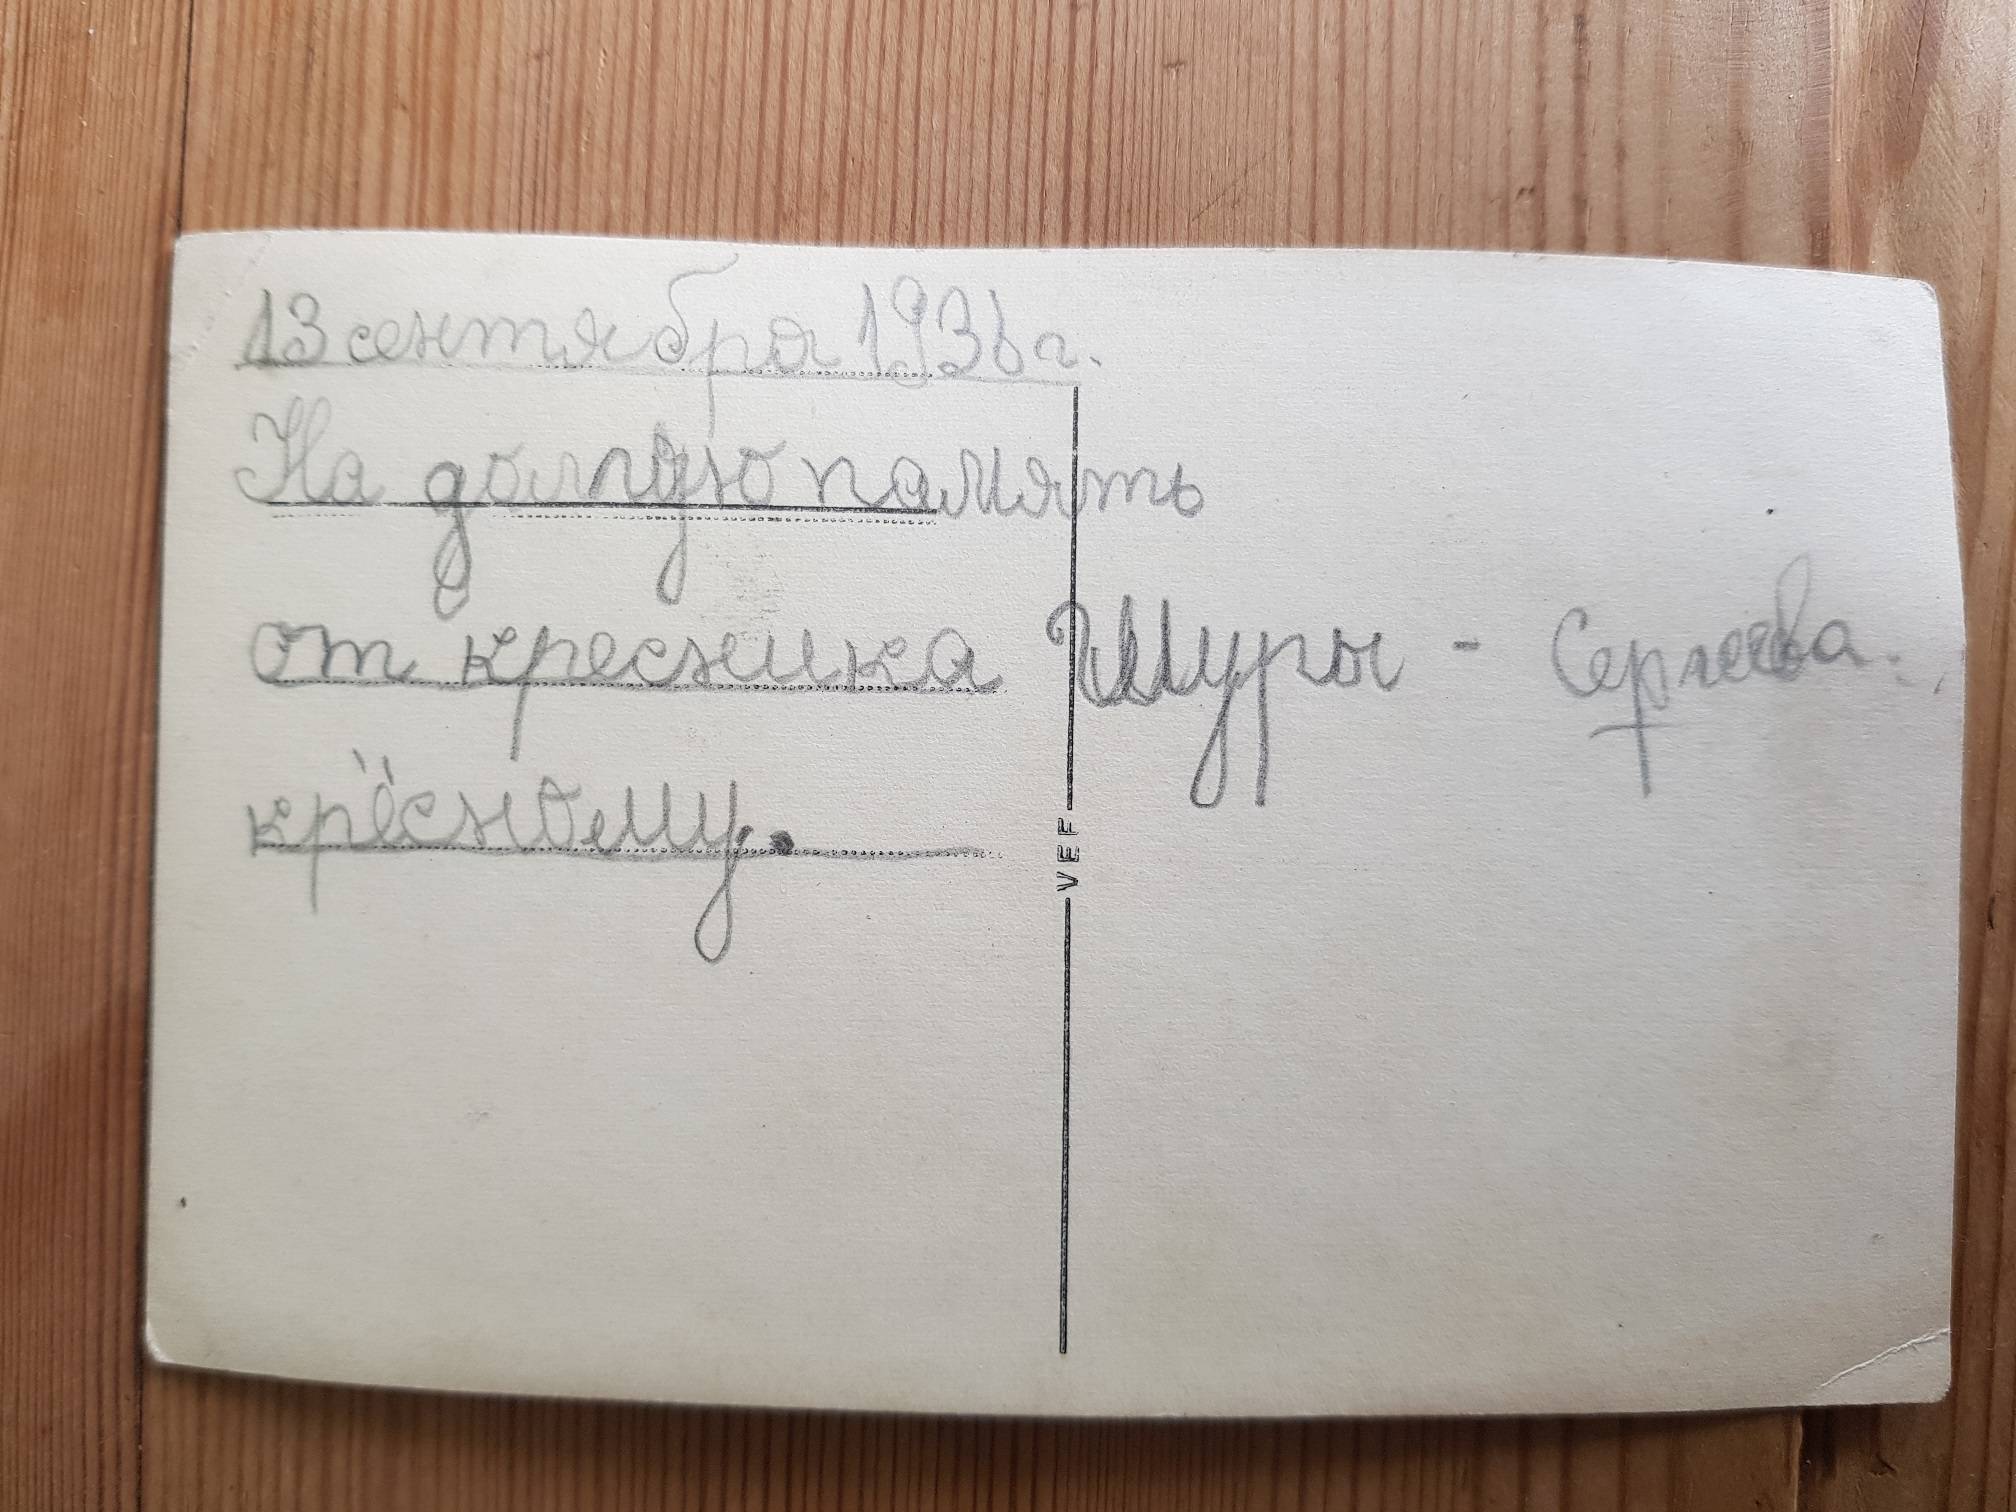 13 сентября 1936 г.
На долгую память
от кресника Шуры - Сергеева.
крёсному.
VEF